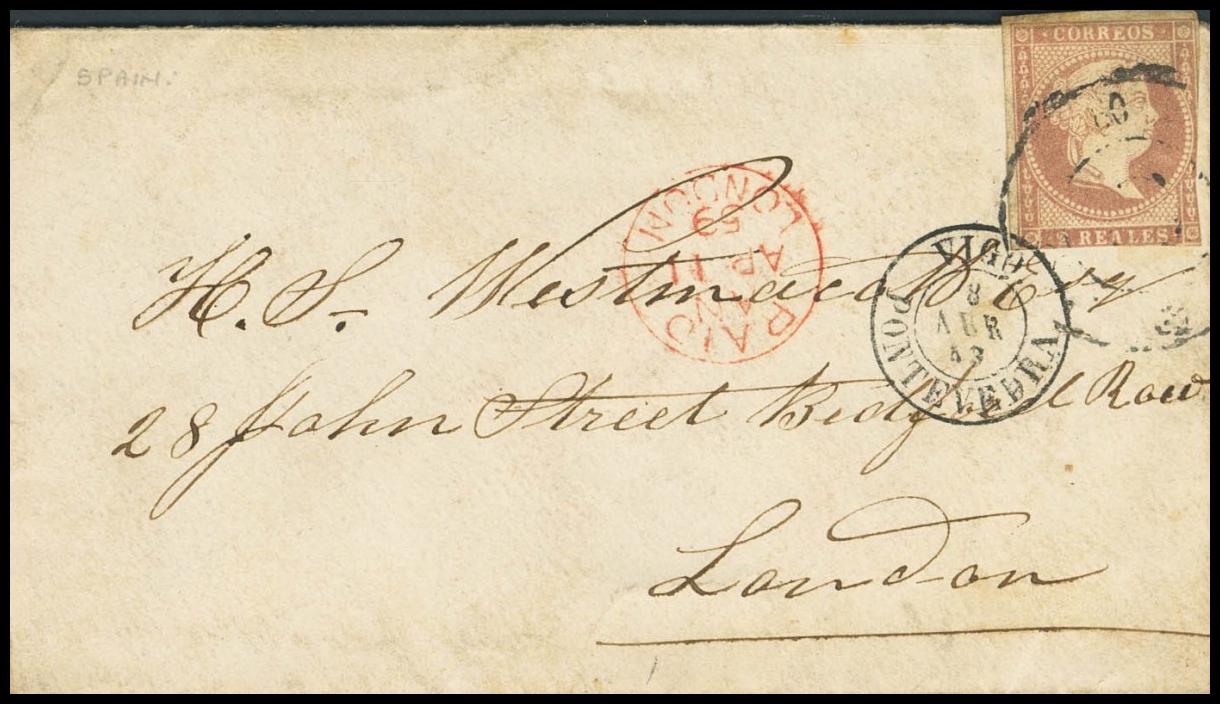 SPAIN:
CORREOS
2 REALES
LONDON
59
AP 11
AN
PAID
VIGO
8
ABR
PONTEVEDRA
H. S. Westmacott Esq
28 John Street Bedford Row
London